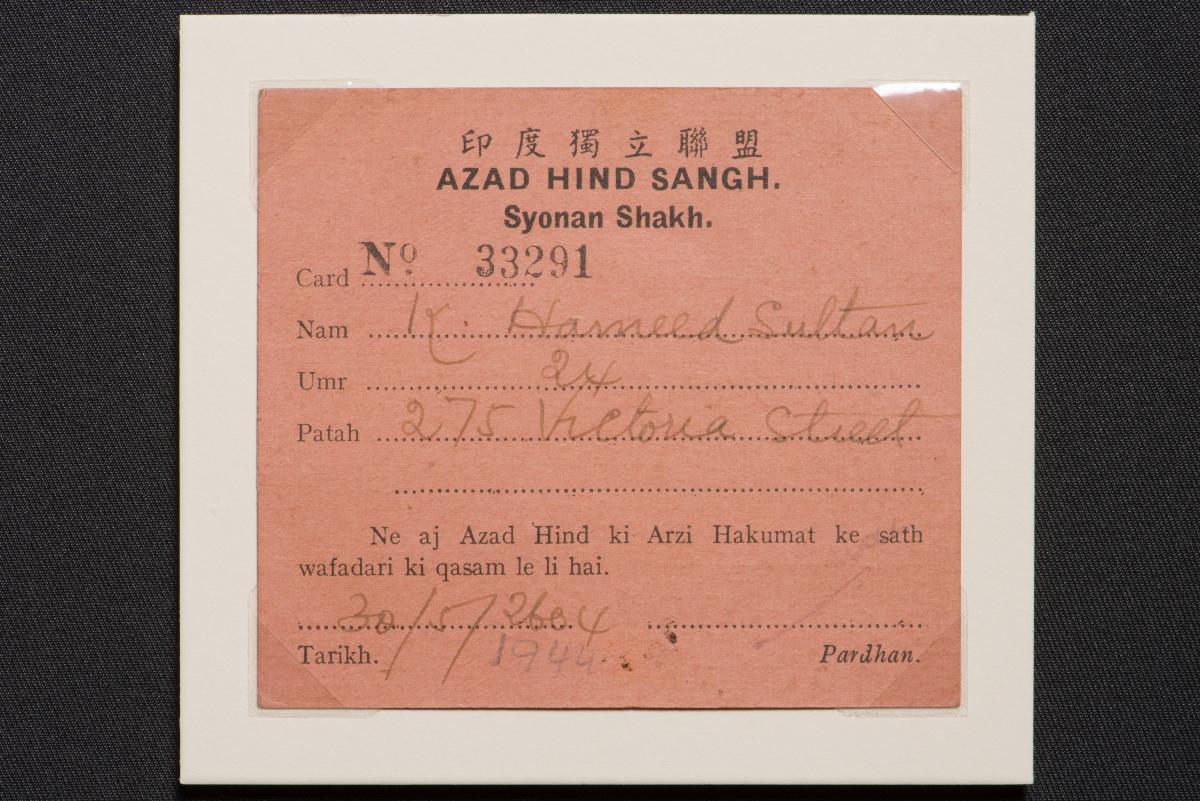 印度獨立聯盟
AZAD HIND SANGH.
Syonan Shakh.
Card No. 33291
Nam K. Hameed Sultan
Umr 24
Patah 275 Victoria Street
Ne aj Azad Hind ki Arzi Hakumat ke sath
wafadari ki qasam le li hai.
30/5/2604
Tarikh. 1944 Pardhan.